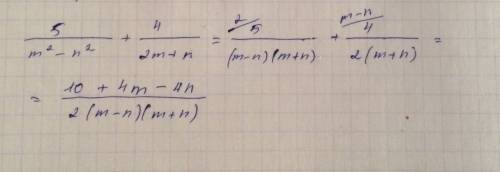 5/(m² - n²) + 4/(2m + n) = 2/ 5/((m-n)(m+n)) + m-n/ 4/(2(m+n)) =
= (10 + 4m - 4n)/(2(m-n)(m+n))